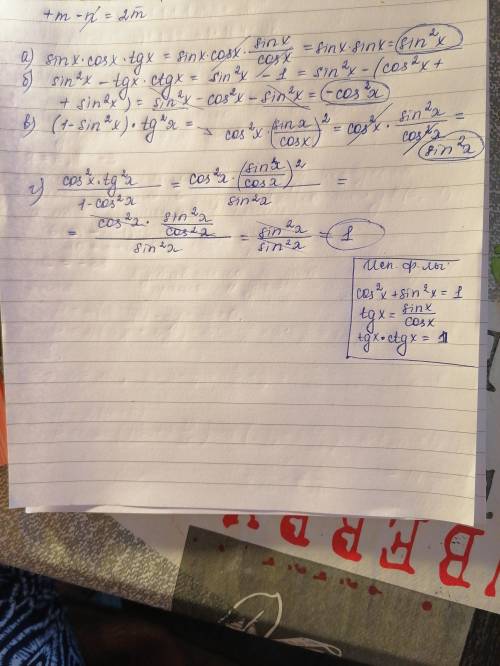 +m - n = 2m
а) sinx·cosx·tgx = sinx·cosx· sinx/cosx = sinx·sinx = sin²x
б) sin²x - tgx·ctgx = sin²x - 1 = sin²x - (cos²x +
+ sin²x) = sin²x - cos²x - sin²x = -cos²x
в) (1-sin²x)·tg²x = cos²x·(sinx/cosx)² = cos²x· sin²x/cos²x =
sin²x
г) cos²x·tg²x / 1-cos²x = cos²x·(sinx/cosx)² / sin²x =
= cos²x· sin²x/cos²x / sin²x = sin²x/sin²x = 1
Исп. ф-лы:
cos²x + sin²x = 1
tgx = sinx/cosx
tgx·ctgx = 1
BERRY